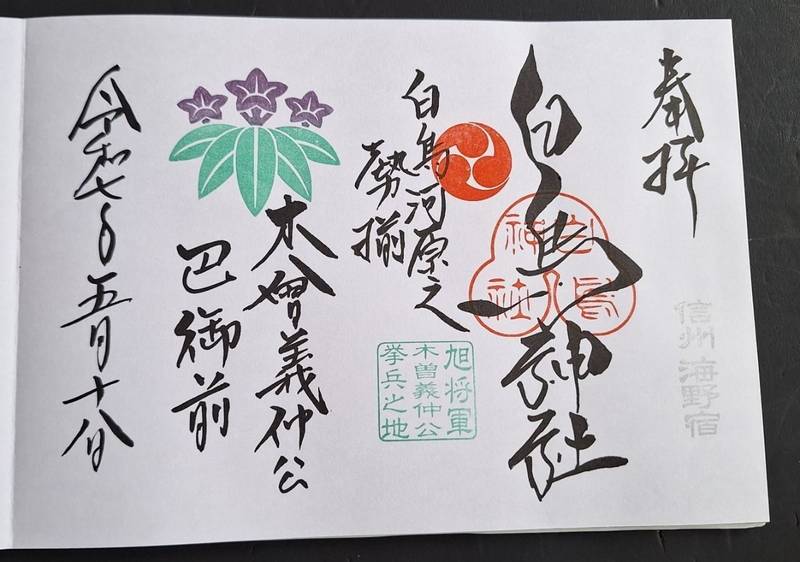 奉拝
信州 海野宿
白鳥神社
白鳥神社
白鳥河原之
勢揃
旭将軍
木曽義仲公
挙兵之地
木曾義仲公
巴御前
令和七年五月十八日